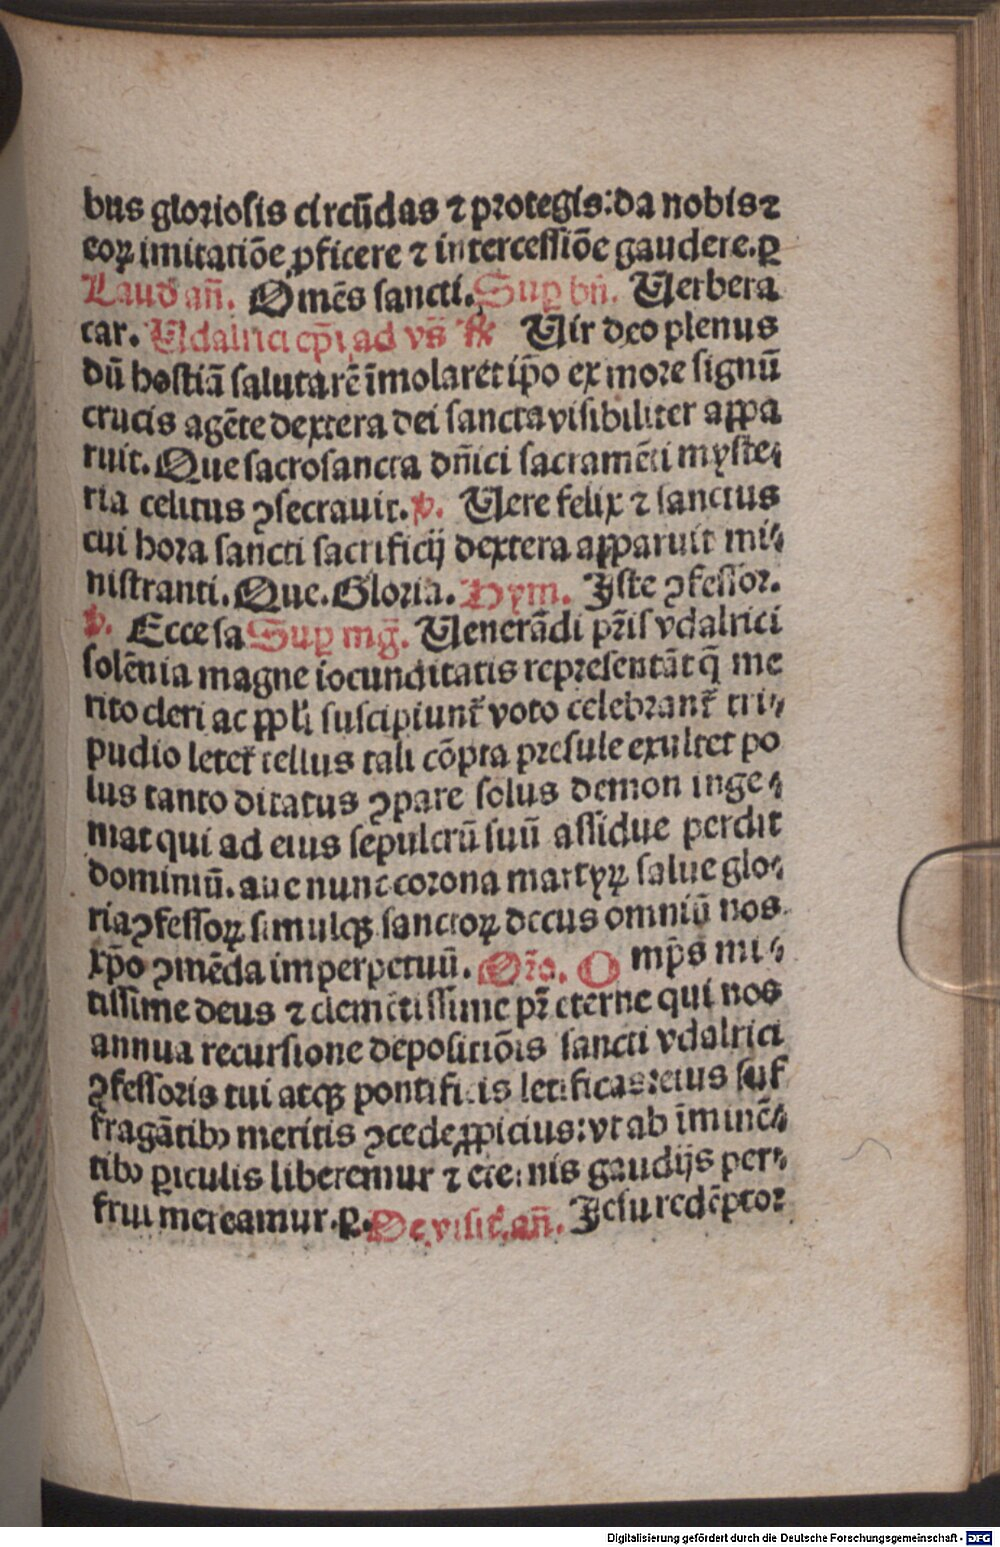 bus gloriosis circũdas ⁊ protegis: da nobis ⁊
eoꝝ imitatiõe ꝓficere ⁊ intercessiõe gaudere. ꝑ
Laud̛ añ. Omẽs sancti. Sup bñ. Verbera
car. Vdalrici ep̃i ad vs̃ R̃ Vir deo plenus
dũ hostiã salutarẽ ĩmolaret ip̃o ex more signũ
crucis agẽte dextera dei sancta visibiliter appa
ruit. Que sacrosancta dñici sacramẽti myste⸗
ria celitus ꝯsecrauit. ꝟ. Uere felix ⁊ sanctus
cui hora sancti sacrificij dextera apparuit mi⸗
nistranti. Que. Gloria. Hym. Iste ꝯfessor.
ꝟ. Ecce sa Suꝑ mg̃. Uenerãdi pr̃is vdalrici
solẽnia magne iocunditatis representãt q̃ me
rito cleri ac ppl̃i suscipiunt᷑ voto celebrant᷑ tri⸗
pudio letet᷑ tellus tali cõpta presule exultet po
lus tanto ditatus ꝯpare solus demon inge⸗
mat qui ad eius sepulcrũ suũ assidue perdit
dominiũ. aue nunc corona martyꝝ salue glo⸗
ria ꝯfessoꝝ simulqꝫ sanctoꝝ decus omniũ nos
xp̃o ꝯmẽda imperpetuũ. Or̃o. O mp̃s mi⸗
tissime deus ⁊ clemẽtissime pr̃ eterne qui nos
annua recursione depositiõis sancti vdalrici
ꝯfessoris tui atqꝫ pontificis letificas: eius suf
fragãtibꝰ meritis ꝯcede ꝓpicius: vt ab ĩminẽ⸗
tibꝰ ꝑiculis liberemur ⁊ eternis gaudijs per⸗
frui mereamur. ꝑ. De visit᷑. añ. Iesu redẽptor
Digitalisierung gefördert durch die Deutsche Forschungsgemeinschaft - DFG